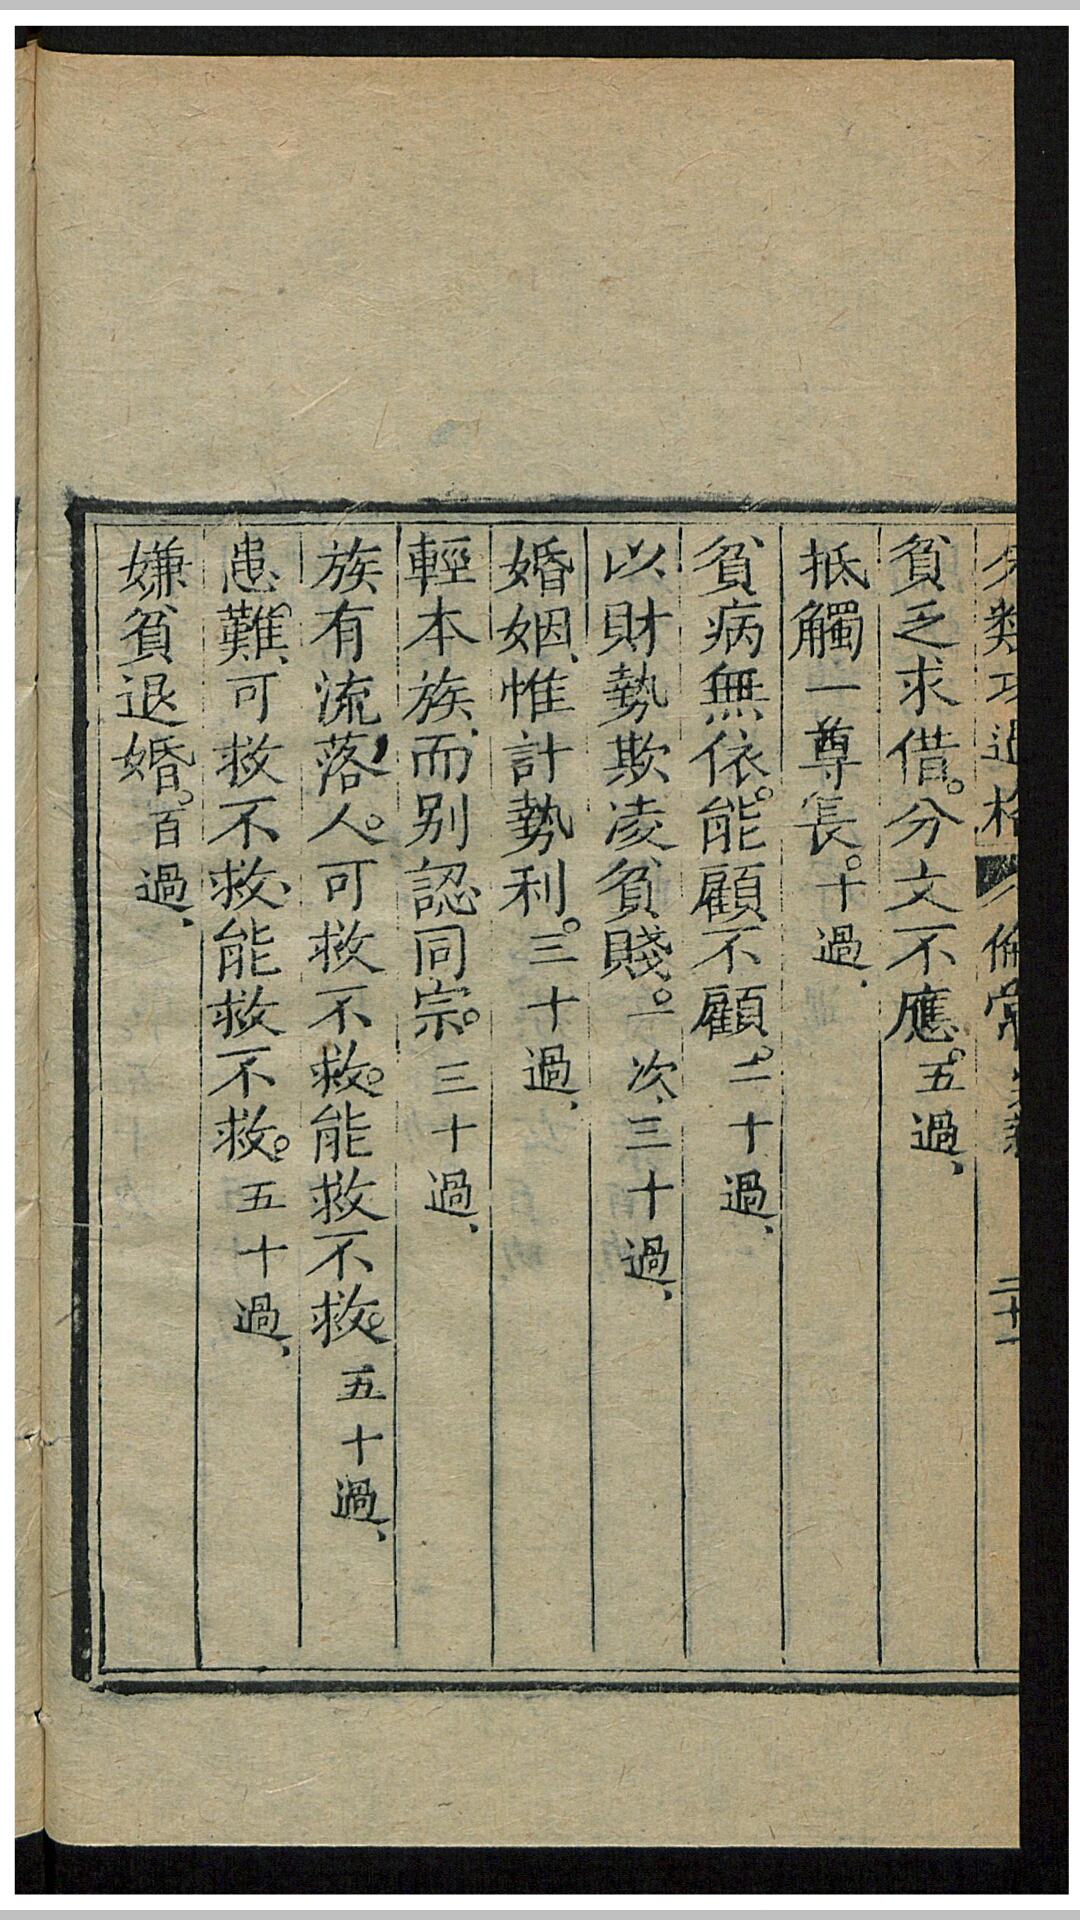 分類功過格 人倫常 宗親 二十一
貧乏求借。分文不應。五過、
抵觸一尊長。十過、
貧病無依。能顧不顧。二十過、
以財勢欺凌貧賤。一次、三十過、
婚姻、惟計勢利。三十過、
輕本族、而別認同宗。三十過、
族有流落人。可救不救。能救不救。五十過、
患難、可救不救、能救不救。五十過、
嫌貧退婚。百過、